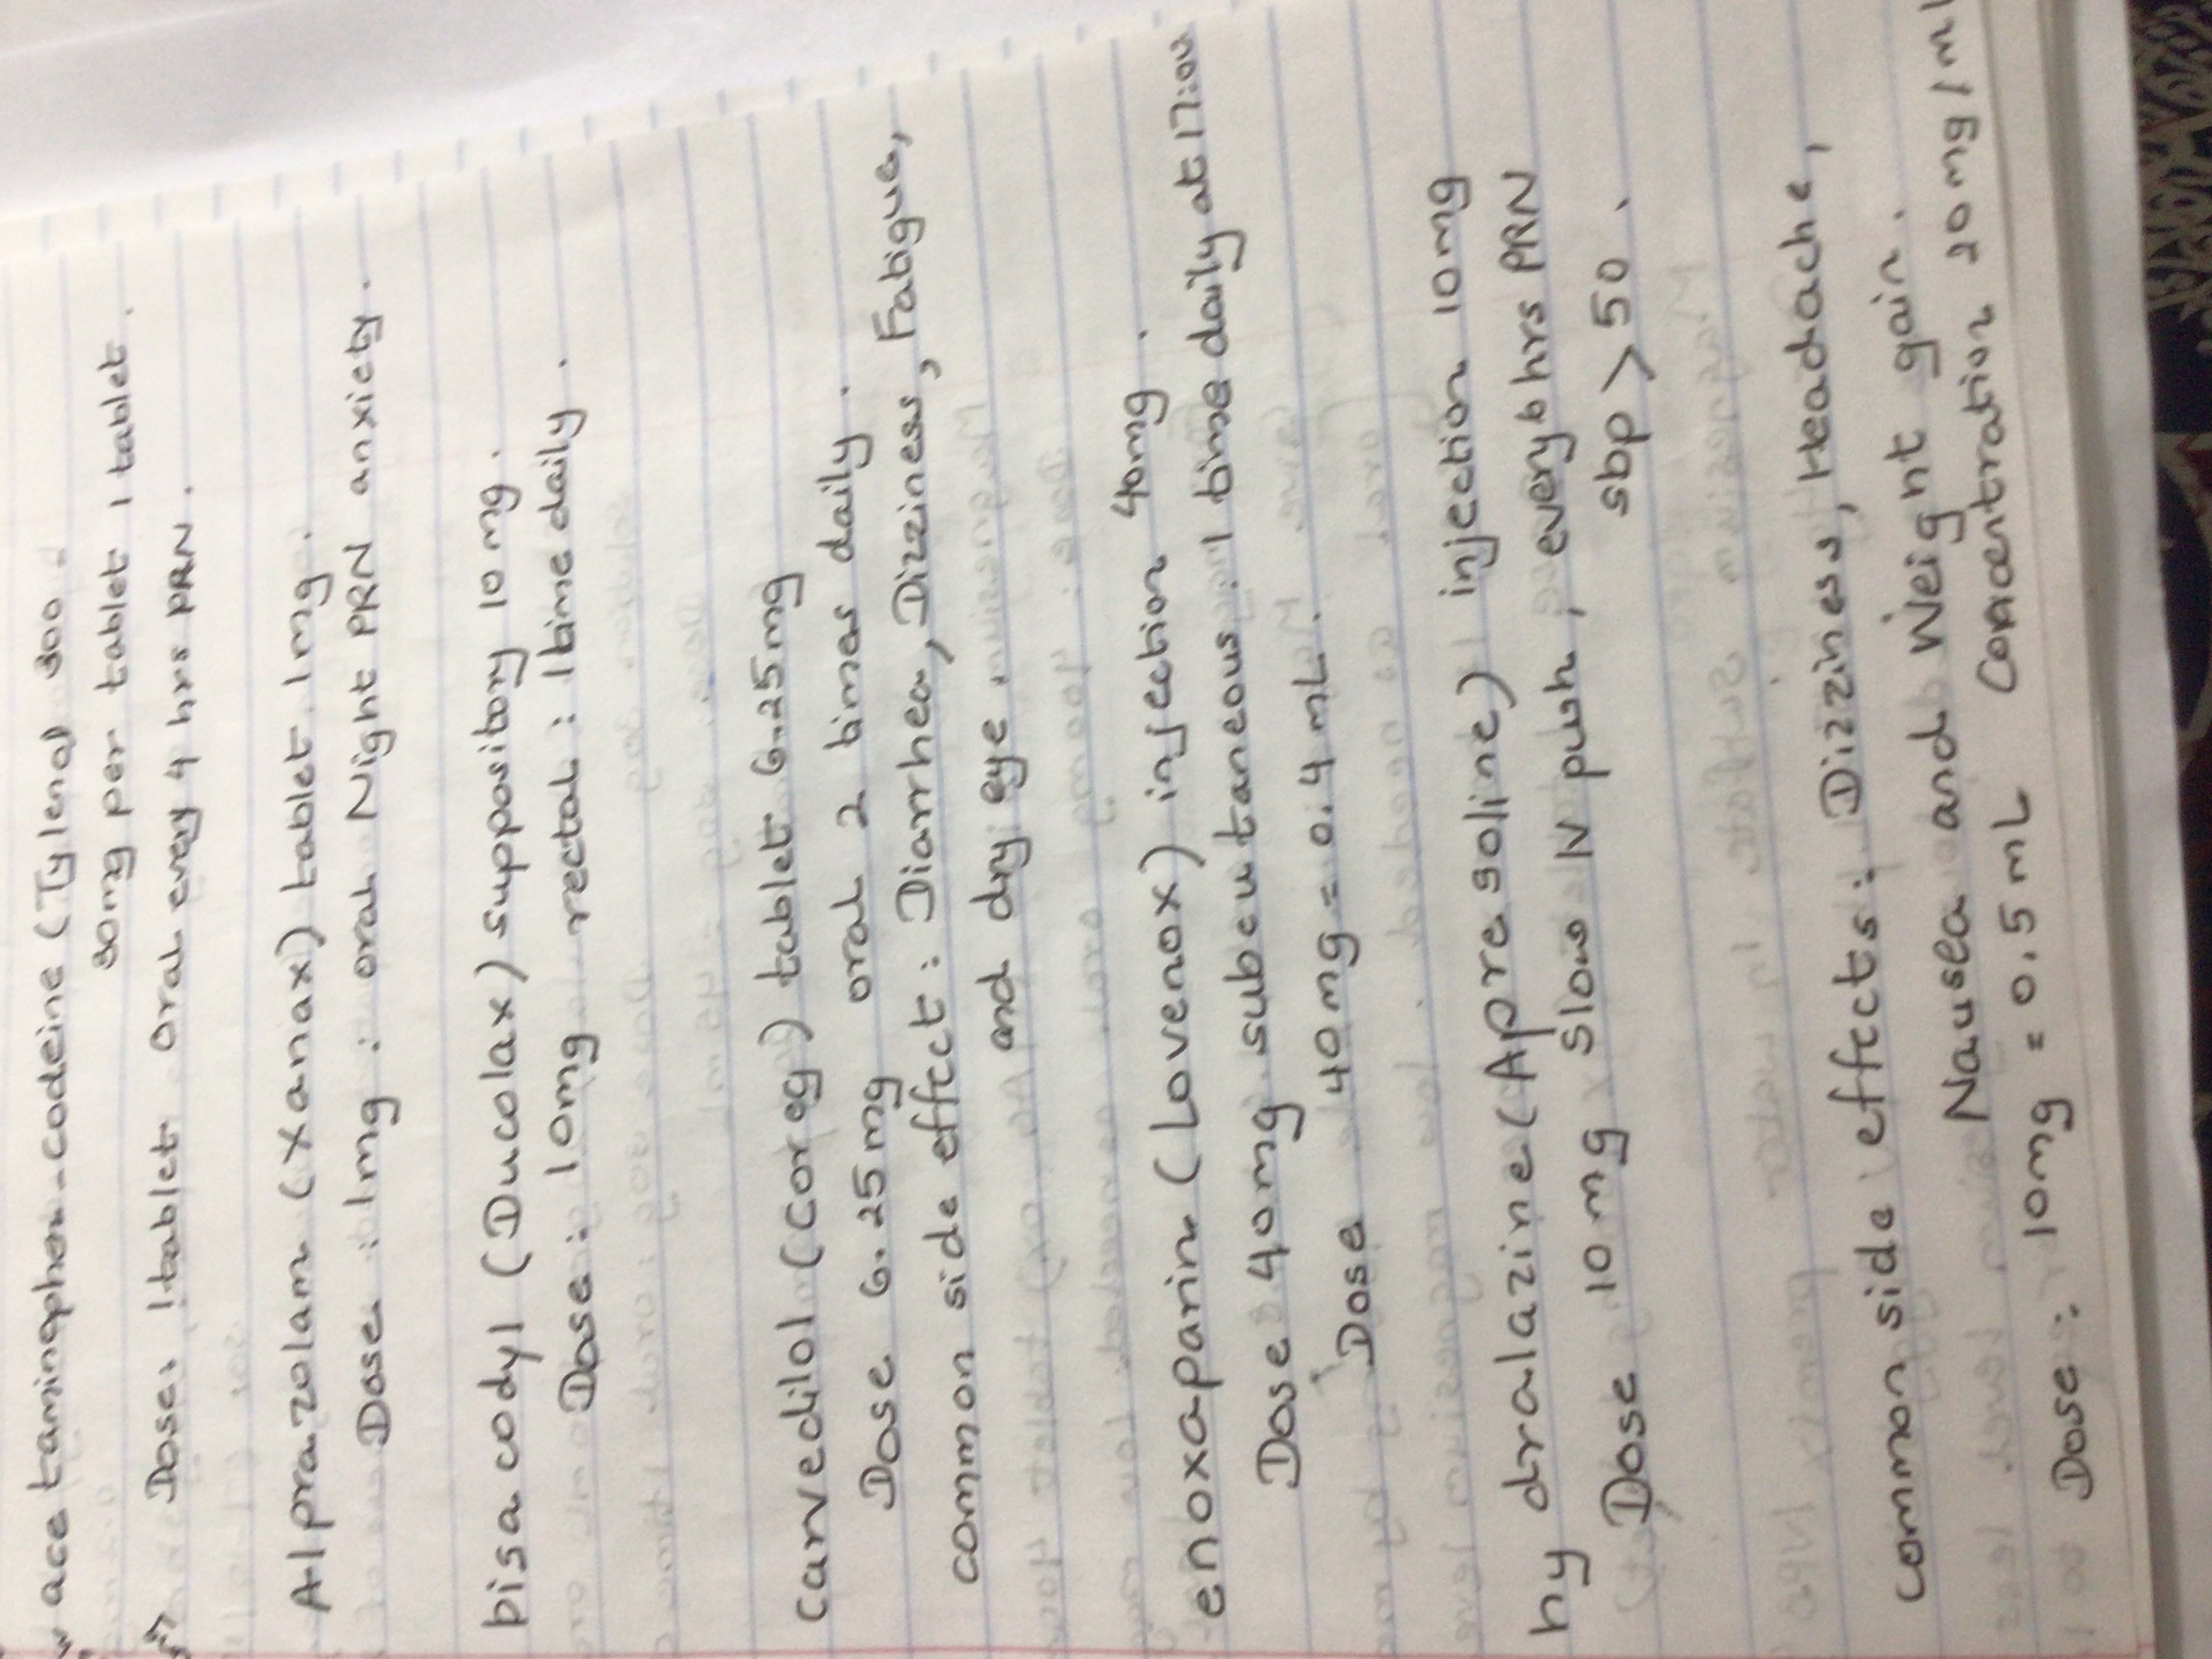 acetaminophen-codeine (Tylenol) 300 -
30mg per tablet 1 tablet.
Dose: 1 tablet Oral every 4 hrs PRN.
Alprazolam (Xanax) tablet 1mg.
Dose: 1mg : oral Night PRN anxiety.
bisacodyl (Ducolax) suppository 10mg.
Dose: 10mg rectal: 1 time daily.
Carvedilol (Coreg) tablet 6.25mg
Dose 6.25mg oral 2 times daily.
common side effect: Diarrhea, Dizziness, Fatigue,
and dry eye.
enoxaparin (Lovenox) injection 40mg.
Dose 40mg subcutaneous: 1 time daily at 17:00
Dose 40mg = 0.4 mL.
hydralazine (Apresoline) injection 10mg
Dose 10mg slow IV push, every 6 hrs PRN
sbp > 50.
common side effects: Dizziness, Headache,
Nausea and Weight gain.
Dose: 10mg = 0.5mL Concentration 20mg/ml